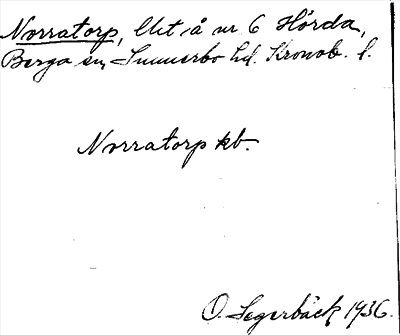 Norratorp, lht å nr 6 Hörda,
Berga sn, Sunnerbo hd. Kronob. l.
Norratorp kb.
O. Segerbäck 1936.